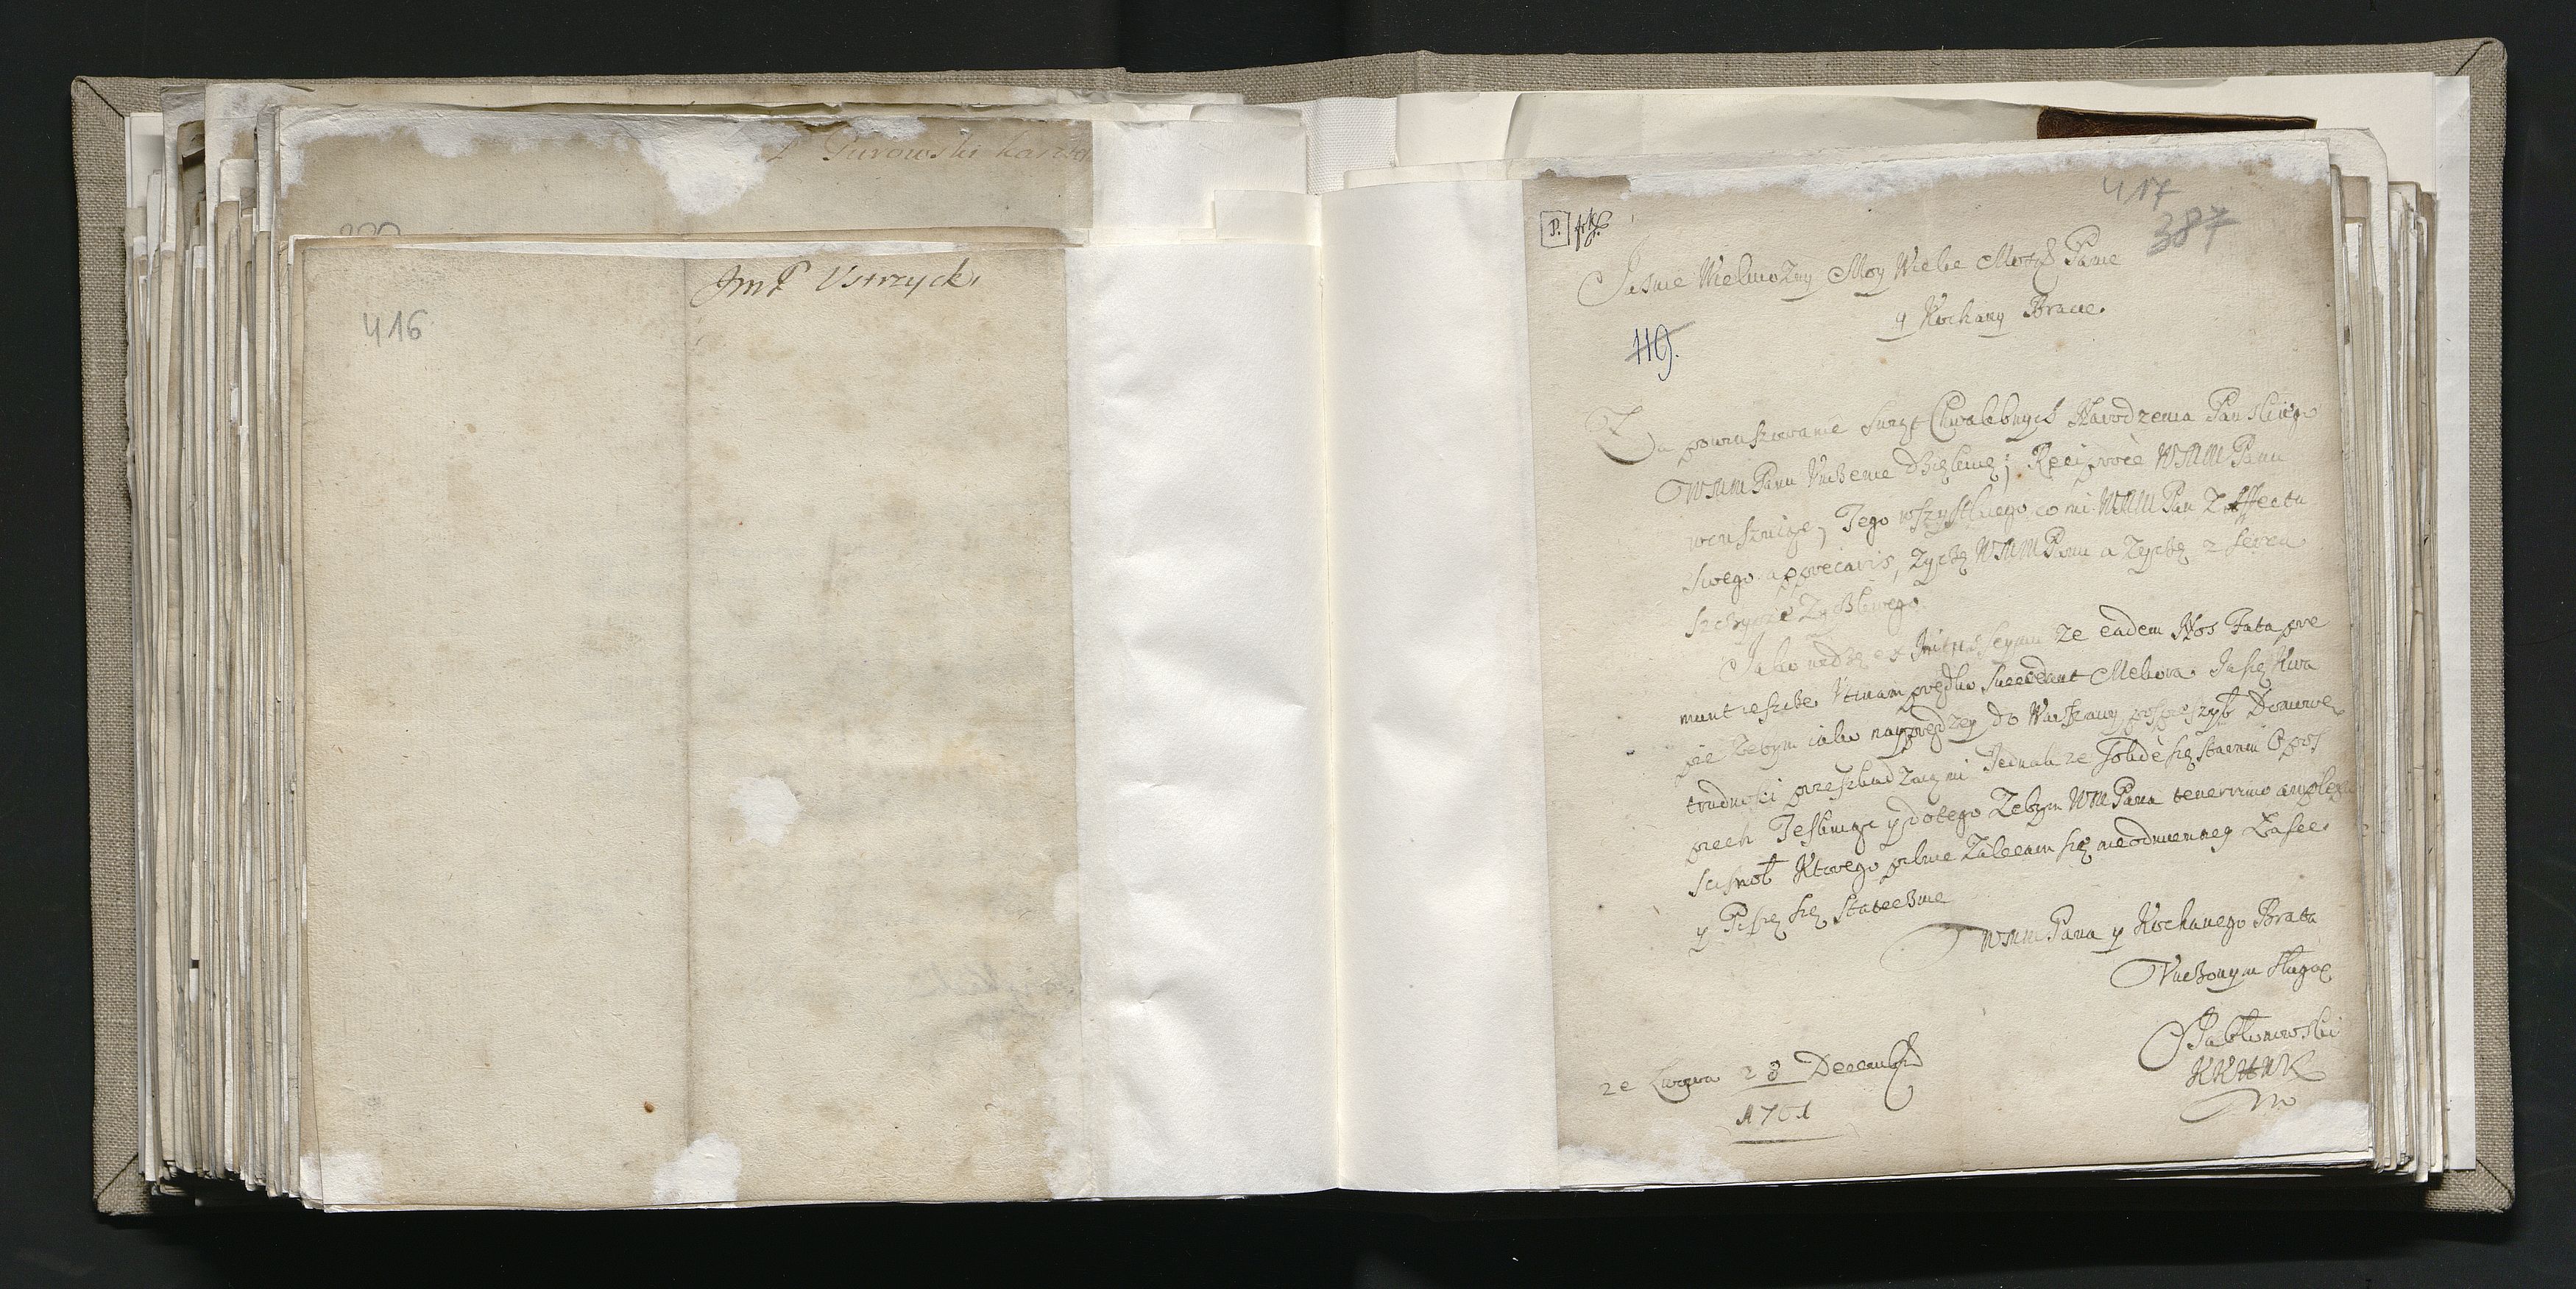 P Turowski
Jmć P Vstrzycki
416
417
387
P.
Jasnie Wielmozny Moy Wielce Mosci Panie
y Kochany Bracie.
119.
Za powinszowanie Swiąt Chwalebnych Narodzenia Panskiego
WMM Panu Vnizenie dziękuię; Reciproce WMM Panu
winszuiąc, Tego wszystkiego co mi WMM Pan Z Affectu
swego apprecaris, Zyczę WMM Panu a Zyczę z serca
szczyrze Zyczliwego.
Jako widzę ex seymu ze eadem Nos Fata pre
munt ieszcze Vtinam prędko Succedant Meliora. Ja się Kwa
pię Zebym iako nayprędzey do Warszawy pospieszył Domowe
trudnosci przeszkadzaią mi Jednak ze Solide się staram O pos
piech Tesknige y do tego Zebym WM Pana tenerrime
scisnoł Ktorego pilnie Zalecam się nieodmienney Łasce.
y Piszę się statecznie
WMM Pana y Kochanego Brata
Vnizonym sługą
Jabłonowski
ze Lwowa 23 Decembr
1701